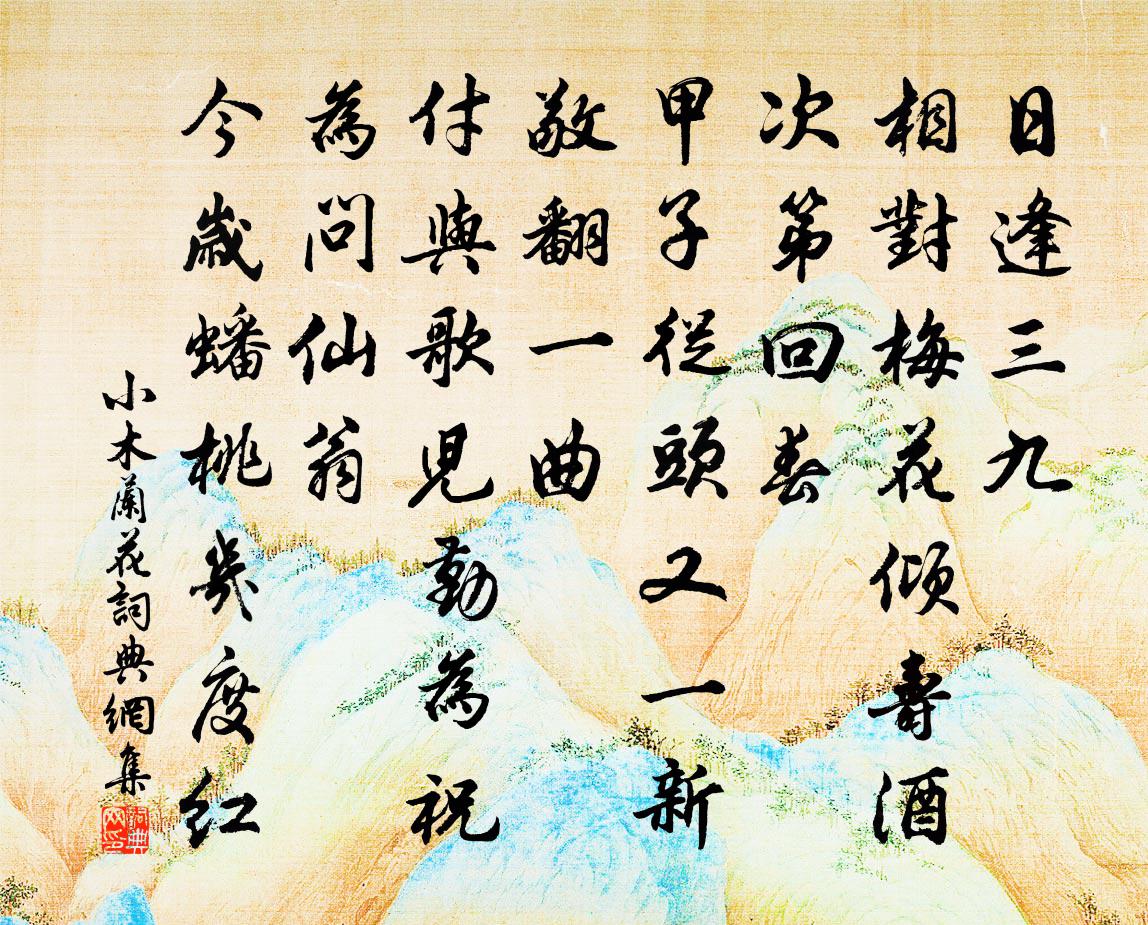 日逢三九
相對梅花傾壽酒
次第回春
甲子從頭又一新
敬翻一曲
付與歌兒勤為祝
為問仙翁
今歲蟠桃幾度紅
小木蘭花詞典網集